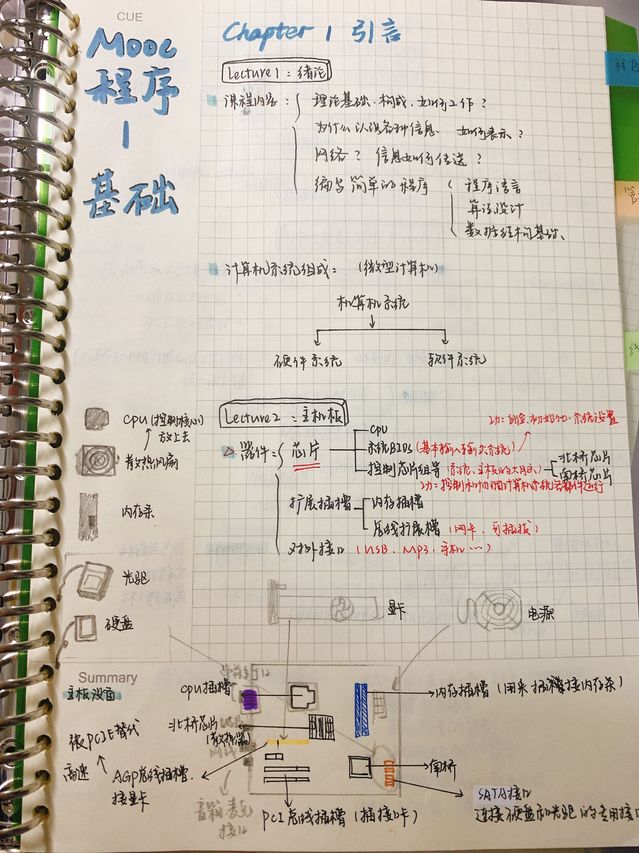 CUE
Mooc
程序
1
基础
Chapter 1 引言
Lecture 1：绪论
课程内容：
理论基础、构成、如何工作？
为什么认识各种信息、如何表示？
网络？ 信息如何传送？
编写简单的程序
程序语言
算法设计
数据结构基础、
计算机系统组成：（微型计算机）
机算机系统
硬件系统
软件系统
Lecture 2：主机板
△器件：
芯片
CPU
系统BIOS（基本输入输出系统）
功：自检、初始化、系统设置
控制芯片组等
北桥芯片
南桥芯片
扩展插槽
内存插槽
总线扩展槽（网卡、可插拔）
对外接口（USB、Mp3、手机…）
CPU（控制核心）
放上去
散热风扇
内存条
光驱
硬盘
显卡
电源
Summary
主板设面
CPU插槽
内存插槽（用来插接内存条）
北桥芯片
（散热器）
被PCIE替代
高速
AGP总线插槽、
接显卡
南桥
SATA接口
连接硬盘和光驱的专用接口
PCI总线插槽（插接口卡）
音箱、麦克
接口